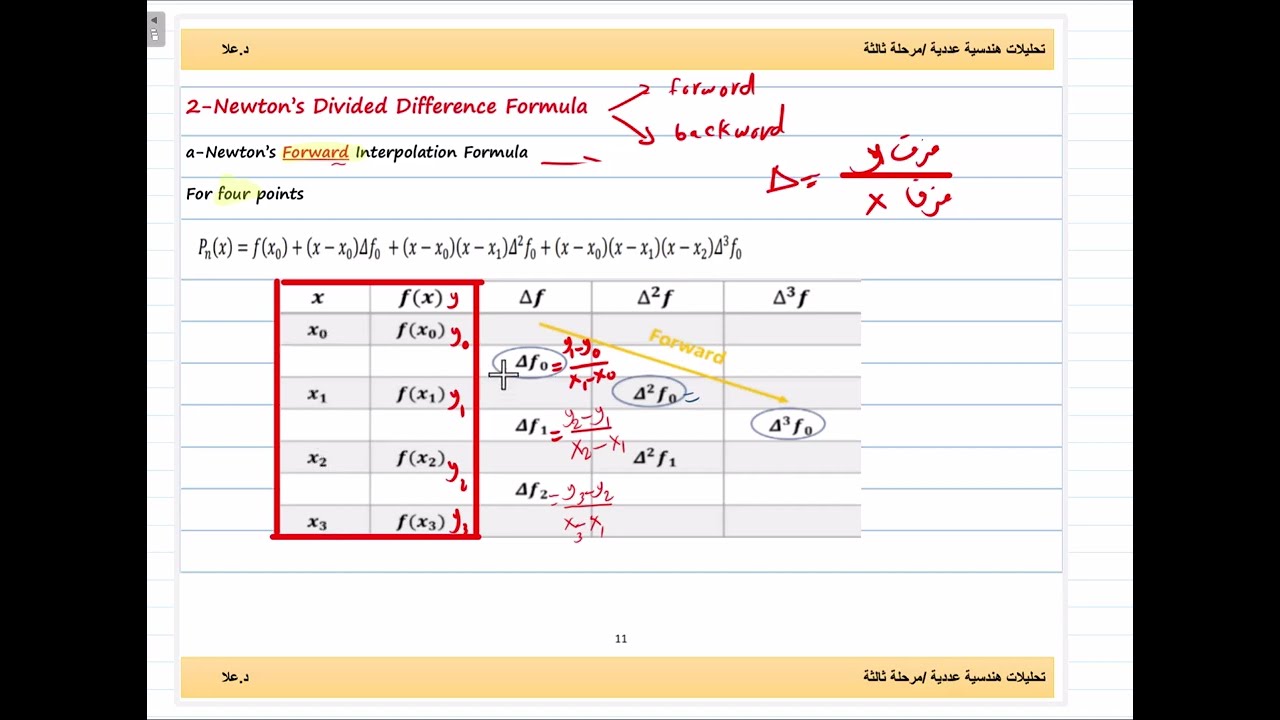 د.علا
تحليلات هندسية عددية /مرحلة ثالثة
2-Newton's Divided Difference Formula
forword
backword
a-Newton's Forward Interpolation Formula
Δ = فرق y / فرق x
For four points
Pₙ(x) = f(x₀) + (x − x₀)Δf₀ + (x − x₀)(x − x₁)Δ²f₀ + (x − x₀)(x − x₁)(x − x₂)Δ³f₀
x f(x) y Δf Δ²f Δ³f
x₀ f(x₀) y₀
Forward
Δf₀ = y₁-y₀ / x₁-x₀
x₁ f(x₁) y₁ Δ²f₀ =
Δf₁ = y₂-y₁ / x₂-x₁ Δ³f₀
x₂ f(x₂) y₂ Δ²f₁
Δf₂ = y₃-y₂ / x₃-x₁
x₃ f(x₃) y₃
11
د.علا
تحليلات هندسية عددية /مرحلة ثالثة